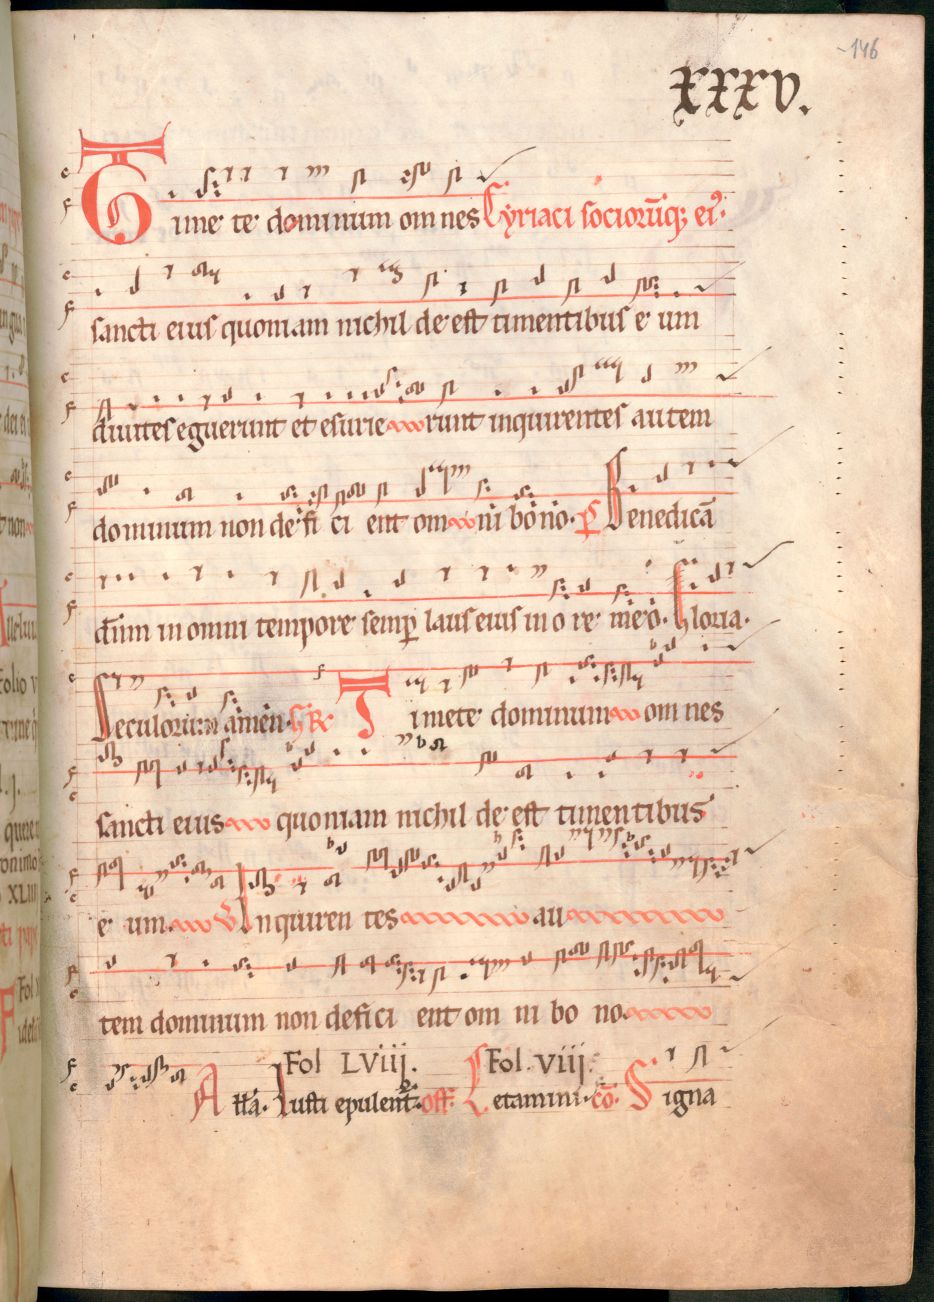 146
XXXV.
Time te dominum om nes Cyriaci sociorūq; ei9.
sancti eius quoniam nichil de est timentibus e um
diuites eguerunt et esurie runt inquirentes autem
dominum non de fi ci ent om ni bo no. P̄ Benedicā
dūm in omni tempore semp laus eius in o re meo. Gloria.
Seculorum amen. GR̄ Timete dominum om nes
sancti eius quoniam nichil de est timentibus
e um. V Inquiren tes au
tem dominum non defici ent om ni bo no.
Fol LViij. Fol. viij.
All'a. Iusti epulent. off. Letamini. cō. Signa